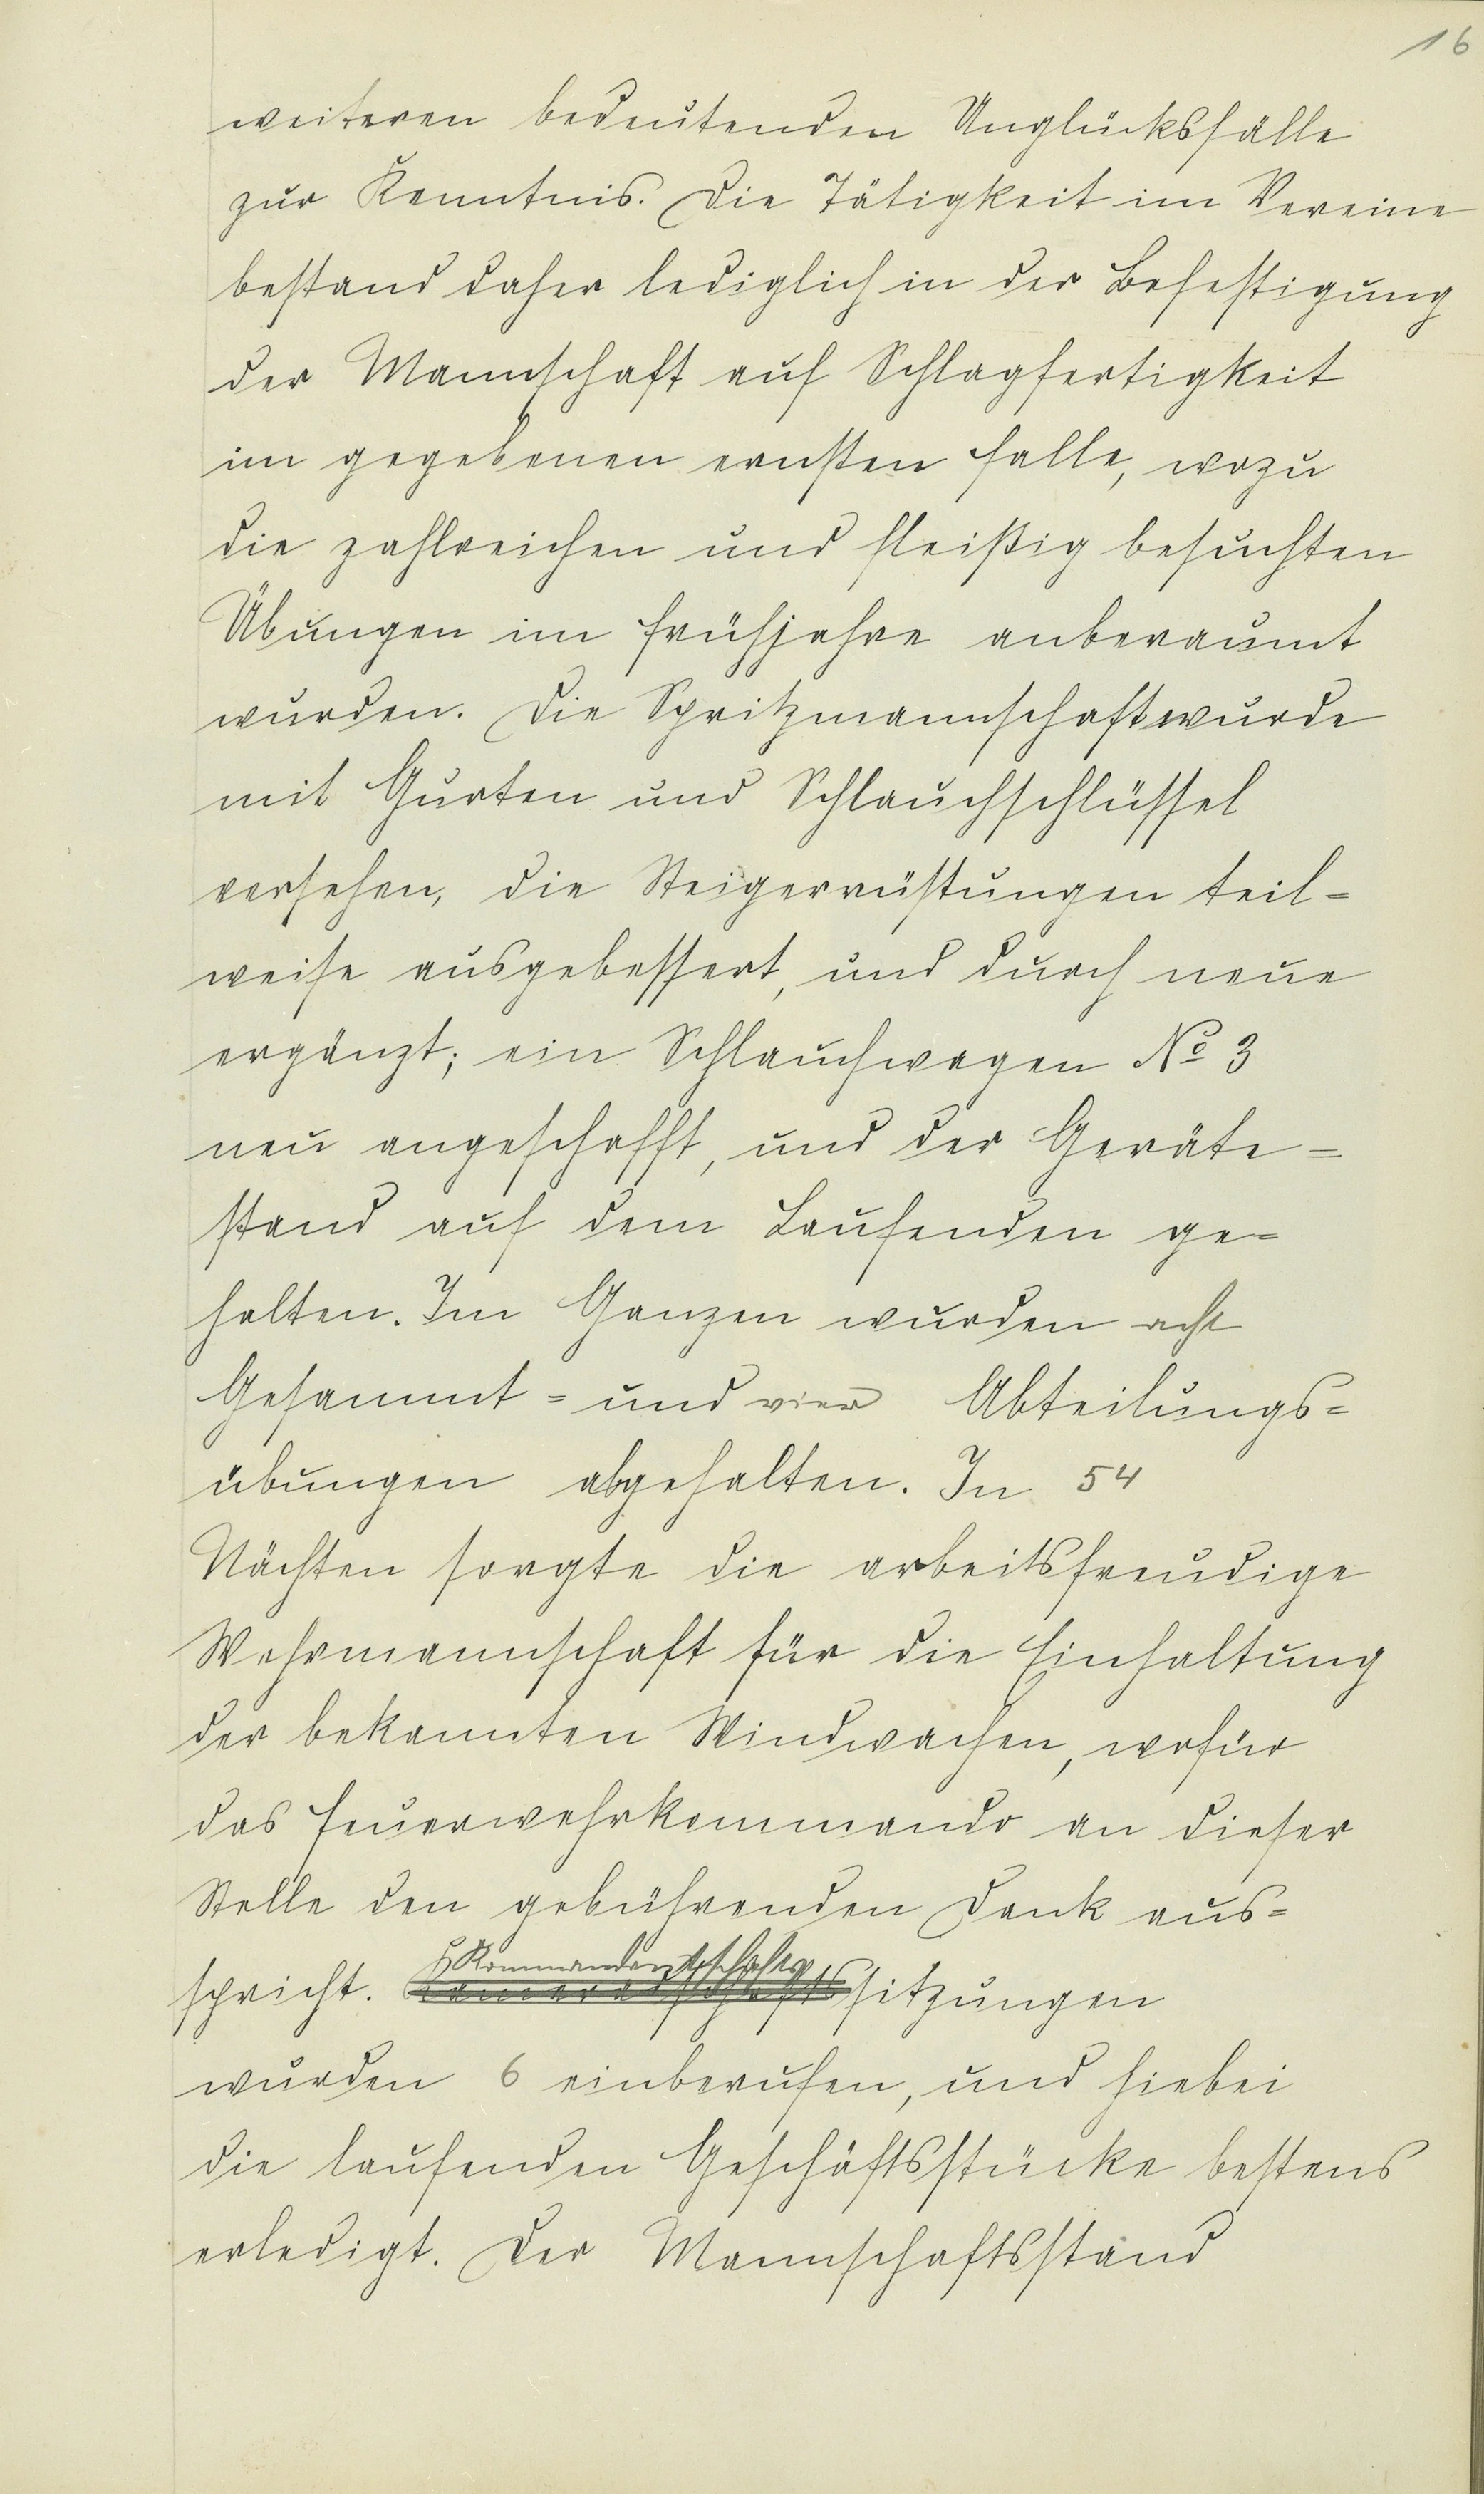 16
weiteren bedeutenden Unglücksfälle
zur Kenntnis. Die Tätigkeit im Vereine
bestand daher lediglich in der Befestigung
der Mannschaft auf Schlagfertigkeit
im gegebenen ernsten Falle, wozu
die zahlreichen und fleißig besuchten
Übungen im Frühjahre anberaumt
wurden. Die Spritzmannschaft wurde
mit Gurten und Schlauchschlüssel
versehen, die Steigerrüstungen teil=
weise ausgebessert, und durch neue
ergänzt; ein Schlauchwagen No 3
neu angeschafft, und der Geräte=
stand auf dem Laufenden ge=
halten. Im Ganzen wurden acht
Gesammt= und vier Abteilungs=
übungen abgehalten. In 54
Nächten sorgte die arbeitsfreudige
Wehrmannschaft für die Einhaltung
der bekannten Windwachen, wofür
das Feuerwehrkommando an dieser
Stelle den gebührenden Dank aus=
Kommandantschafts
spricht. Kameradschaftssitzungen
wurden 6 einberufen, und hiebei
die laufenden Geschäftsstücke bestens
erledigt. Der Mannschaftsstand